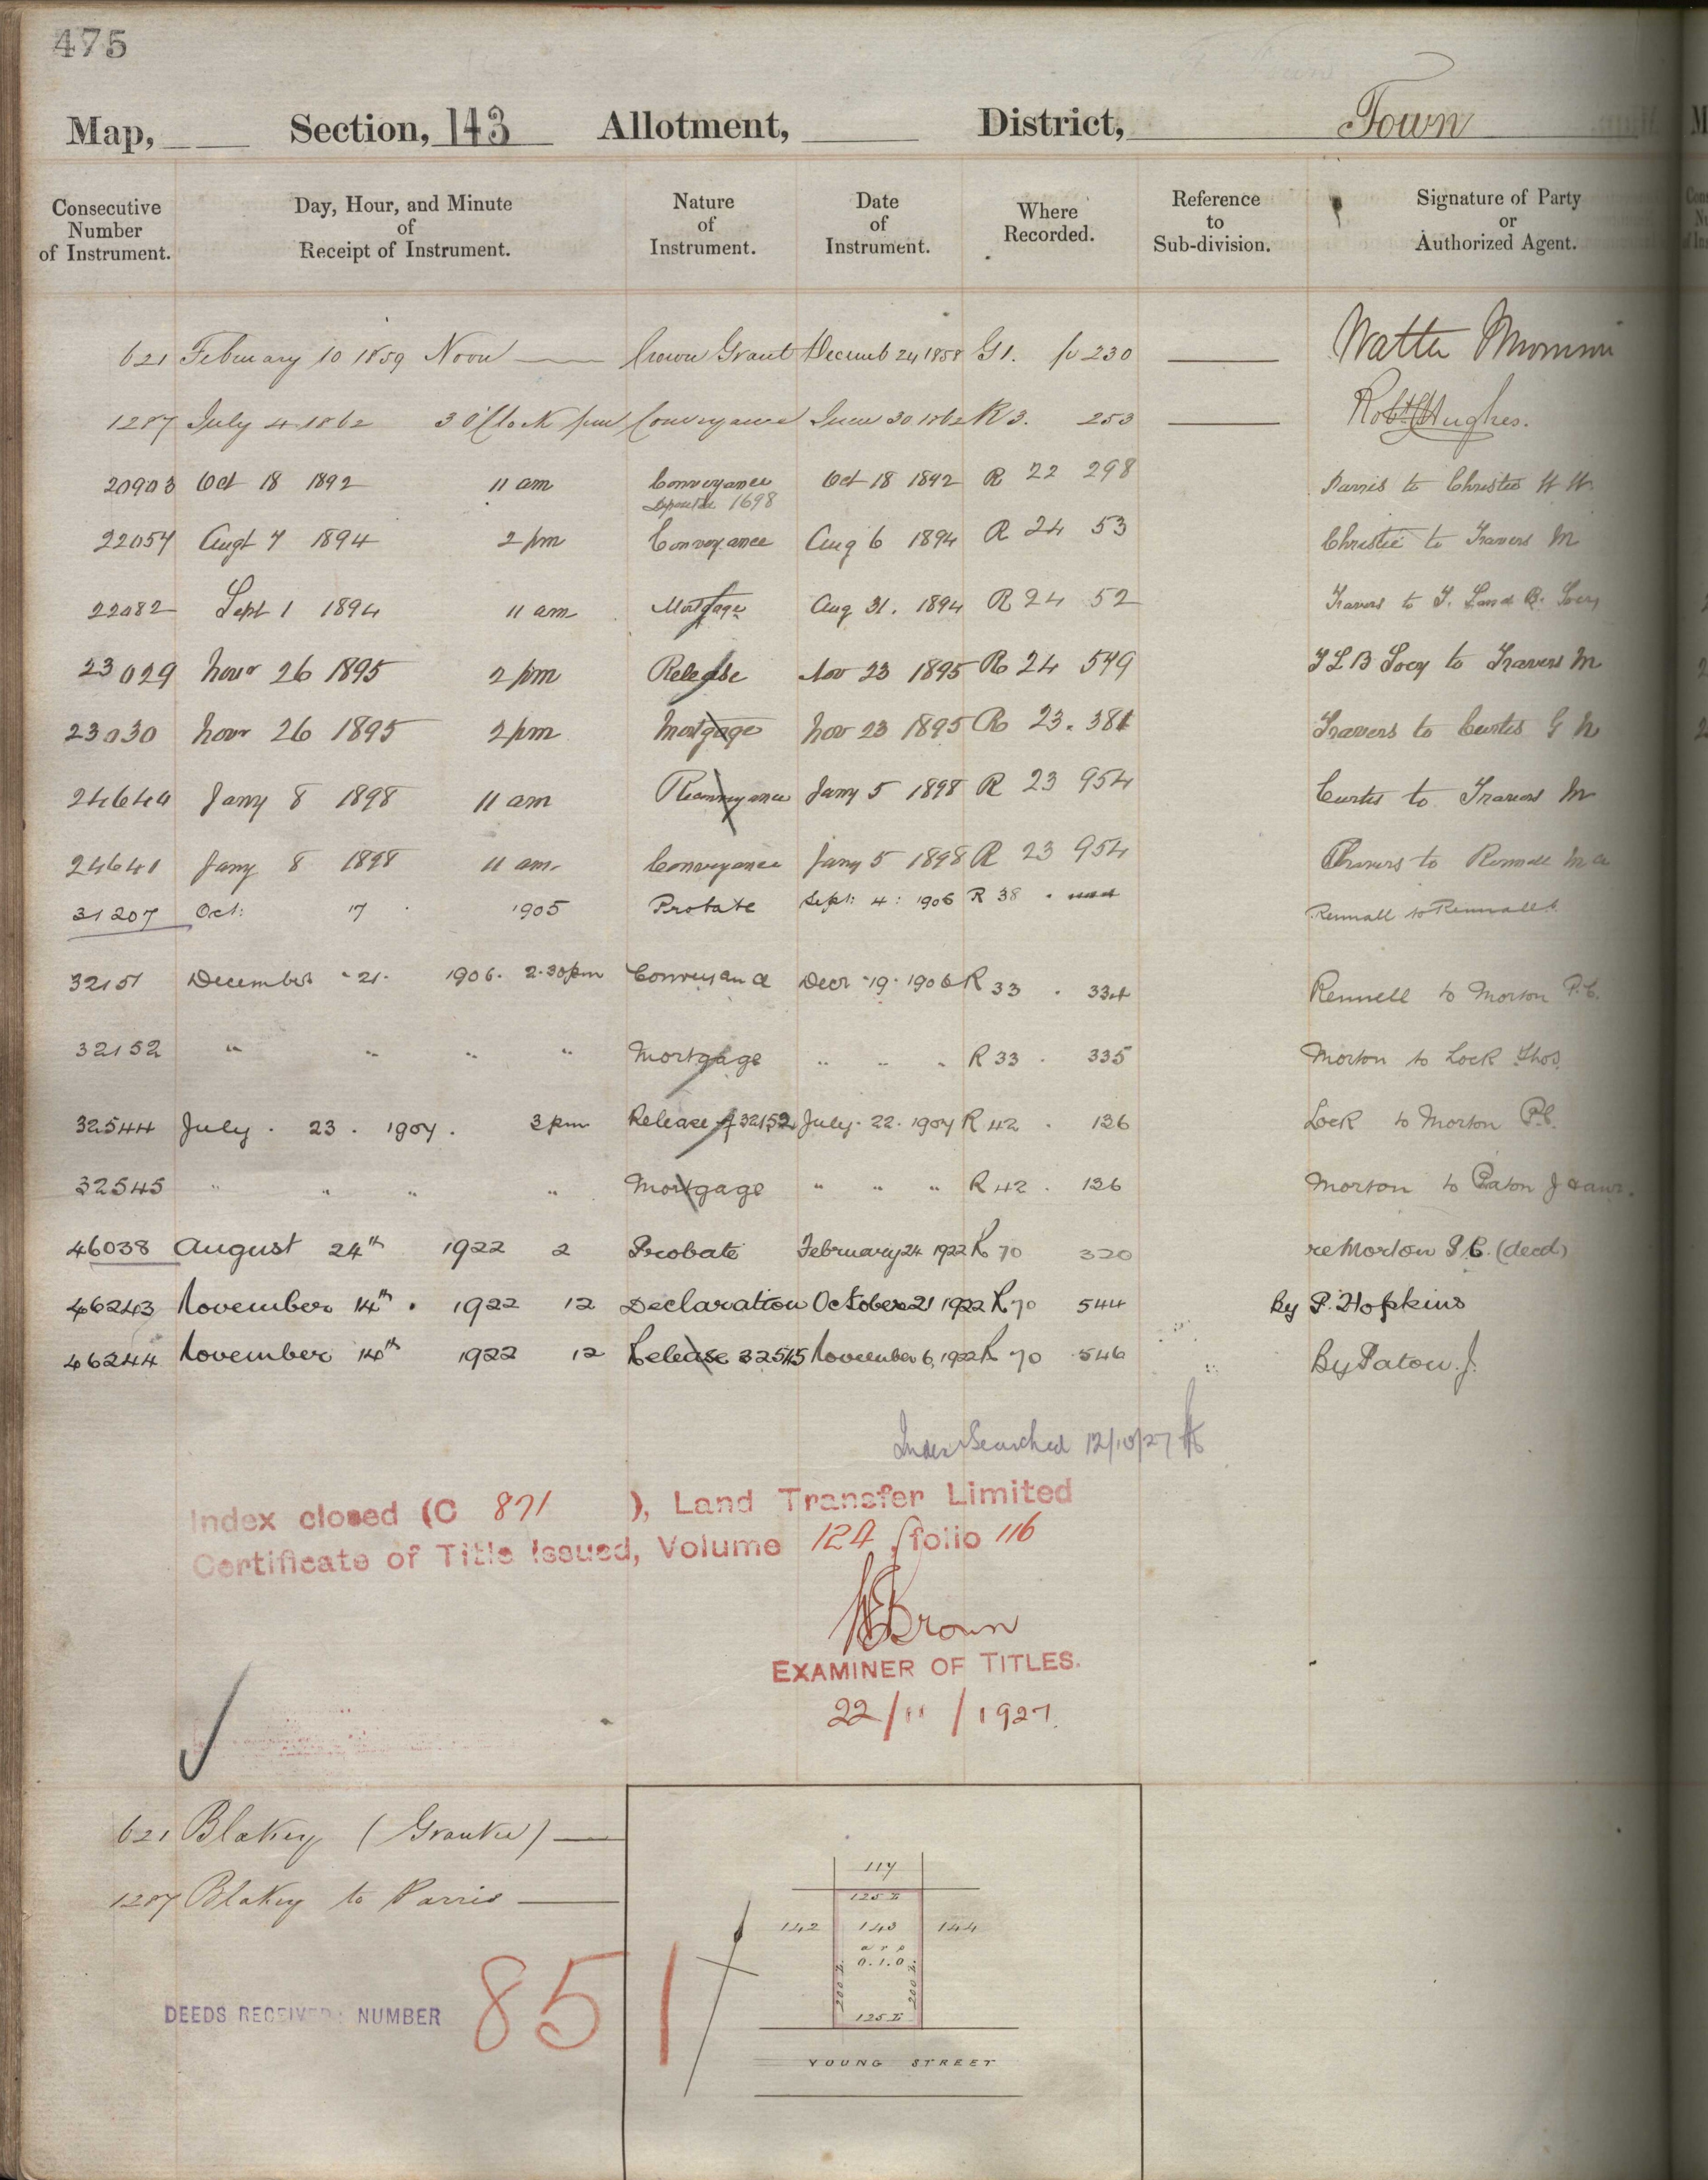 475
Map, Section, 143 Allotment, District, Town
Consecutive Number of Instrument. Day, Hour, and Minute of Receipt of Instrument. Nature of Instrument. Date of Instrument. Where Recorded. Reference to Sub-division. Signature of Party or Authorized Agent.
621 February 10 1859 Noon Crown Grant Decemb 24 1858 G1. p 230 Walter
1287 July 4 1862 3 O'Clock pm Conveyance June 30 1862 R 3. 253 Robt Hughes.
20903 Oct 18 1892 11 am Conveyance Oct 18 1892 R 22 298 Parris to Christie W W.
Deposited 1698
22057 Augt 7 1894 2 pm Conveyance Aug 6 1894 R 24 53 Christie to Travers M
22082 Sept 1 1894 11 am Mortgage Aug 31. 1894 R 24 52 Travers to T. L and B. Socy
23029 Novr 26 1895 2 pm Release Nov 23 1895 R 24 549 T L B Socy to Travers M
23030 Novr 26 1895 2 pm Mortgage Nov 23 1895 R 23. 381 Travers to Curtis G N
24640 Jany 8 1898 11 am Reconveyance Jany 5 1898 R 23 954 Curtis to Travers M
24641 Jany 8 1898 11 am. Conveyance Jany 5 1898 R 23 954 Travers to Rennell M A
31207 Oct: 17 1905 Probate Sept: 4: 1906 R 38 Rennall to Rennall
32151 December 21. 1906. 2.30 pm Conveyance Decr 19. 1906 R 33 . 334 Rennell to Morton P.C.
32152 " " " " Mortgage " " " R 33 . 335 Morton to Lock Thos.
32544 July . 23 . 1907 . 3 pm Release of 32152 July. 22. 1907 R 42 . 136 Lock to Morton P.C.
32545 " " " " Mortgage " " " R 42 . 136 Morton to Paton J & anr.
46038 August 24th 1922 2 Probate February 24 1922 R 70 320 re Morton P.C. (decd)
46243 November 14th . 1922 12 Declaration October 21 1922 R 70 544 By P. Hopkins
46244 November 14th 1922 12 Release 32545 November 6, 1922 R 70 546 By Paton. J.
Index Searched 12/10/27
Index closed (C 871 ), Land Transfer Limited
Certificate of Title Issued, Volume 124, folio 116
Brown
EXAMINER OF TITLES.
22/11/1927.
621 Blakey (Grantee)
1287 Blakey to Parris
DEEDS RECEIVED: NUMBER 851
117
125 L
142 143 144
a r p
0.1.0
200 L. 200 L.
125 L
YOUNG STREET